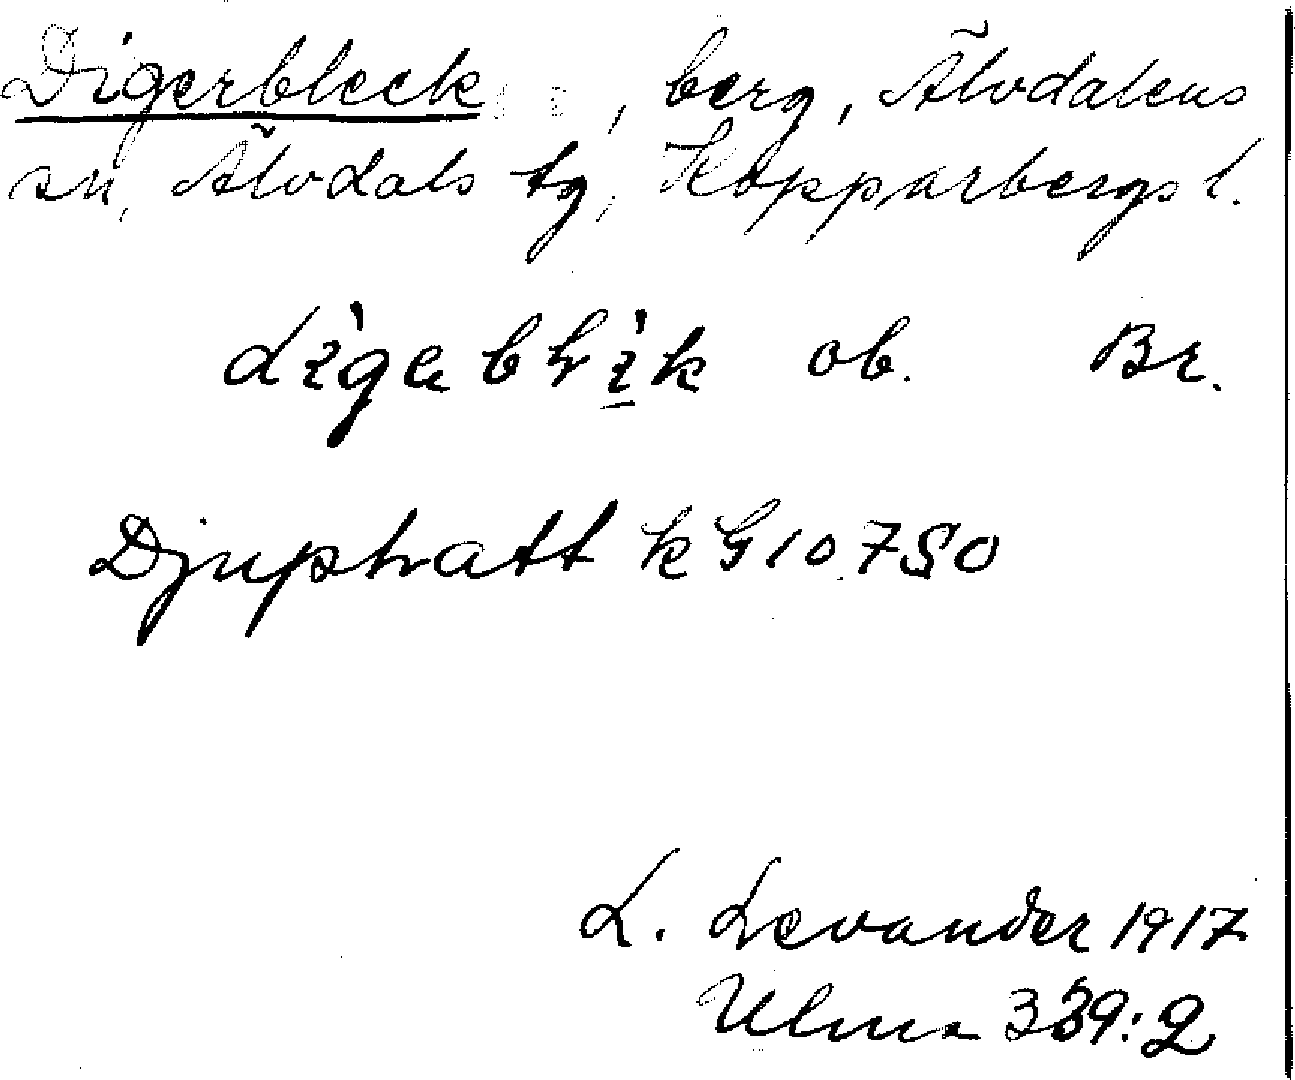 Digerbleck, berg, Älvdalens
sn, Älvdals tg, Kopparbergs l.
digeblik ob. Br.
Djuphatt kG 10.750
L. Levander 1917
Ulma 339:2